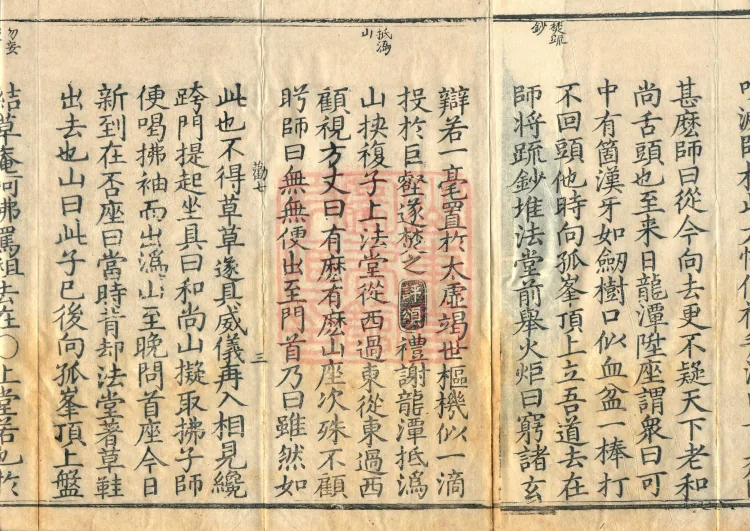 甚麽師曰從今向去更不疑天下老和
尚舌頭也至来日龍潭陞座謂衆曰可
中有箇漢牙如劒樹口似血盆一棒打
不回頭他時向孤峯頂上立吾道去在
焚疏鈔
師将疏鈔堆法堂前舉火炬曰窮諸玄
辯若一毫置於太虛竭世樞機似一滴
投於巨壑遂焚之評頌禮謝龍潭抵溈
抵溈山
山挾複子上法堂從西過東從東過西
顧視方丈曰有麽有麽山座次殊不顧
眄師曰無無便出至門首乃曰雖然如
勘七
三
此也不得草草遂具威儀再入相見纔
跨門提起坐具曰和尚山擬取拂子師
便喝拂袖而出溈山至晚問首座今日
新到在否座曰當時背却法堂著草鞋
出去也山曰此子已後向孤峯頂上盤
勿妄
結草庵呵佛罵祖去在〇上堂若也於